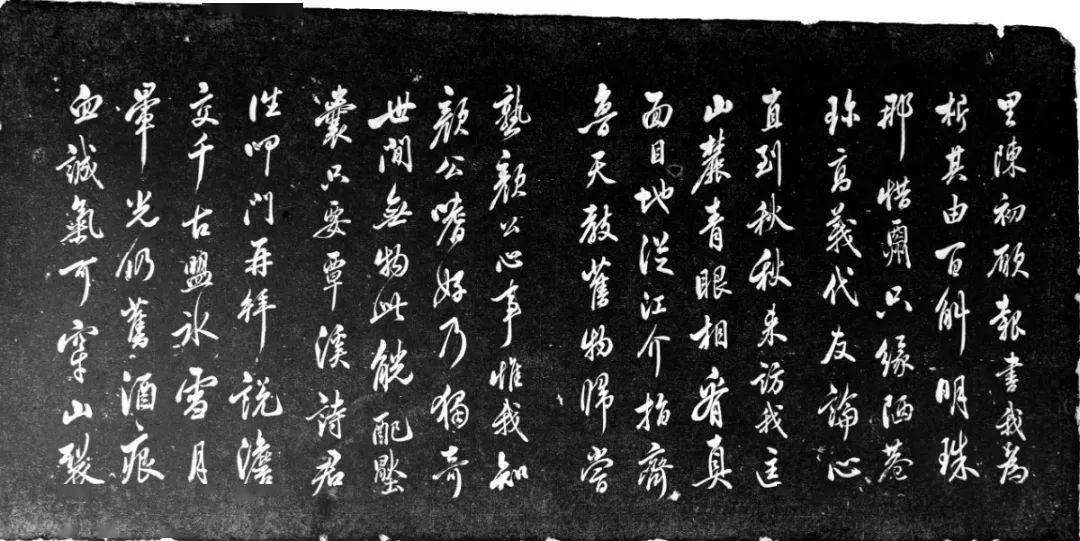 里陳初願報書我為
析其由百斛明珠
那惜爾只緣陋巷
珎高義代友論心
直到秋秋来訪我匡
山麓青眼相看真
面目地從江介指齊
魯天教舊物歸嘗
熟顏公心事惟我知
顏公嗜好乃獨奇
世間無物此能配壓
囊只要覃溪詩君
往叩門再拜說澹
交千古盟氷雪月
暈光仍舊酒痕
血誠氣可穿山裂